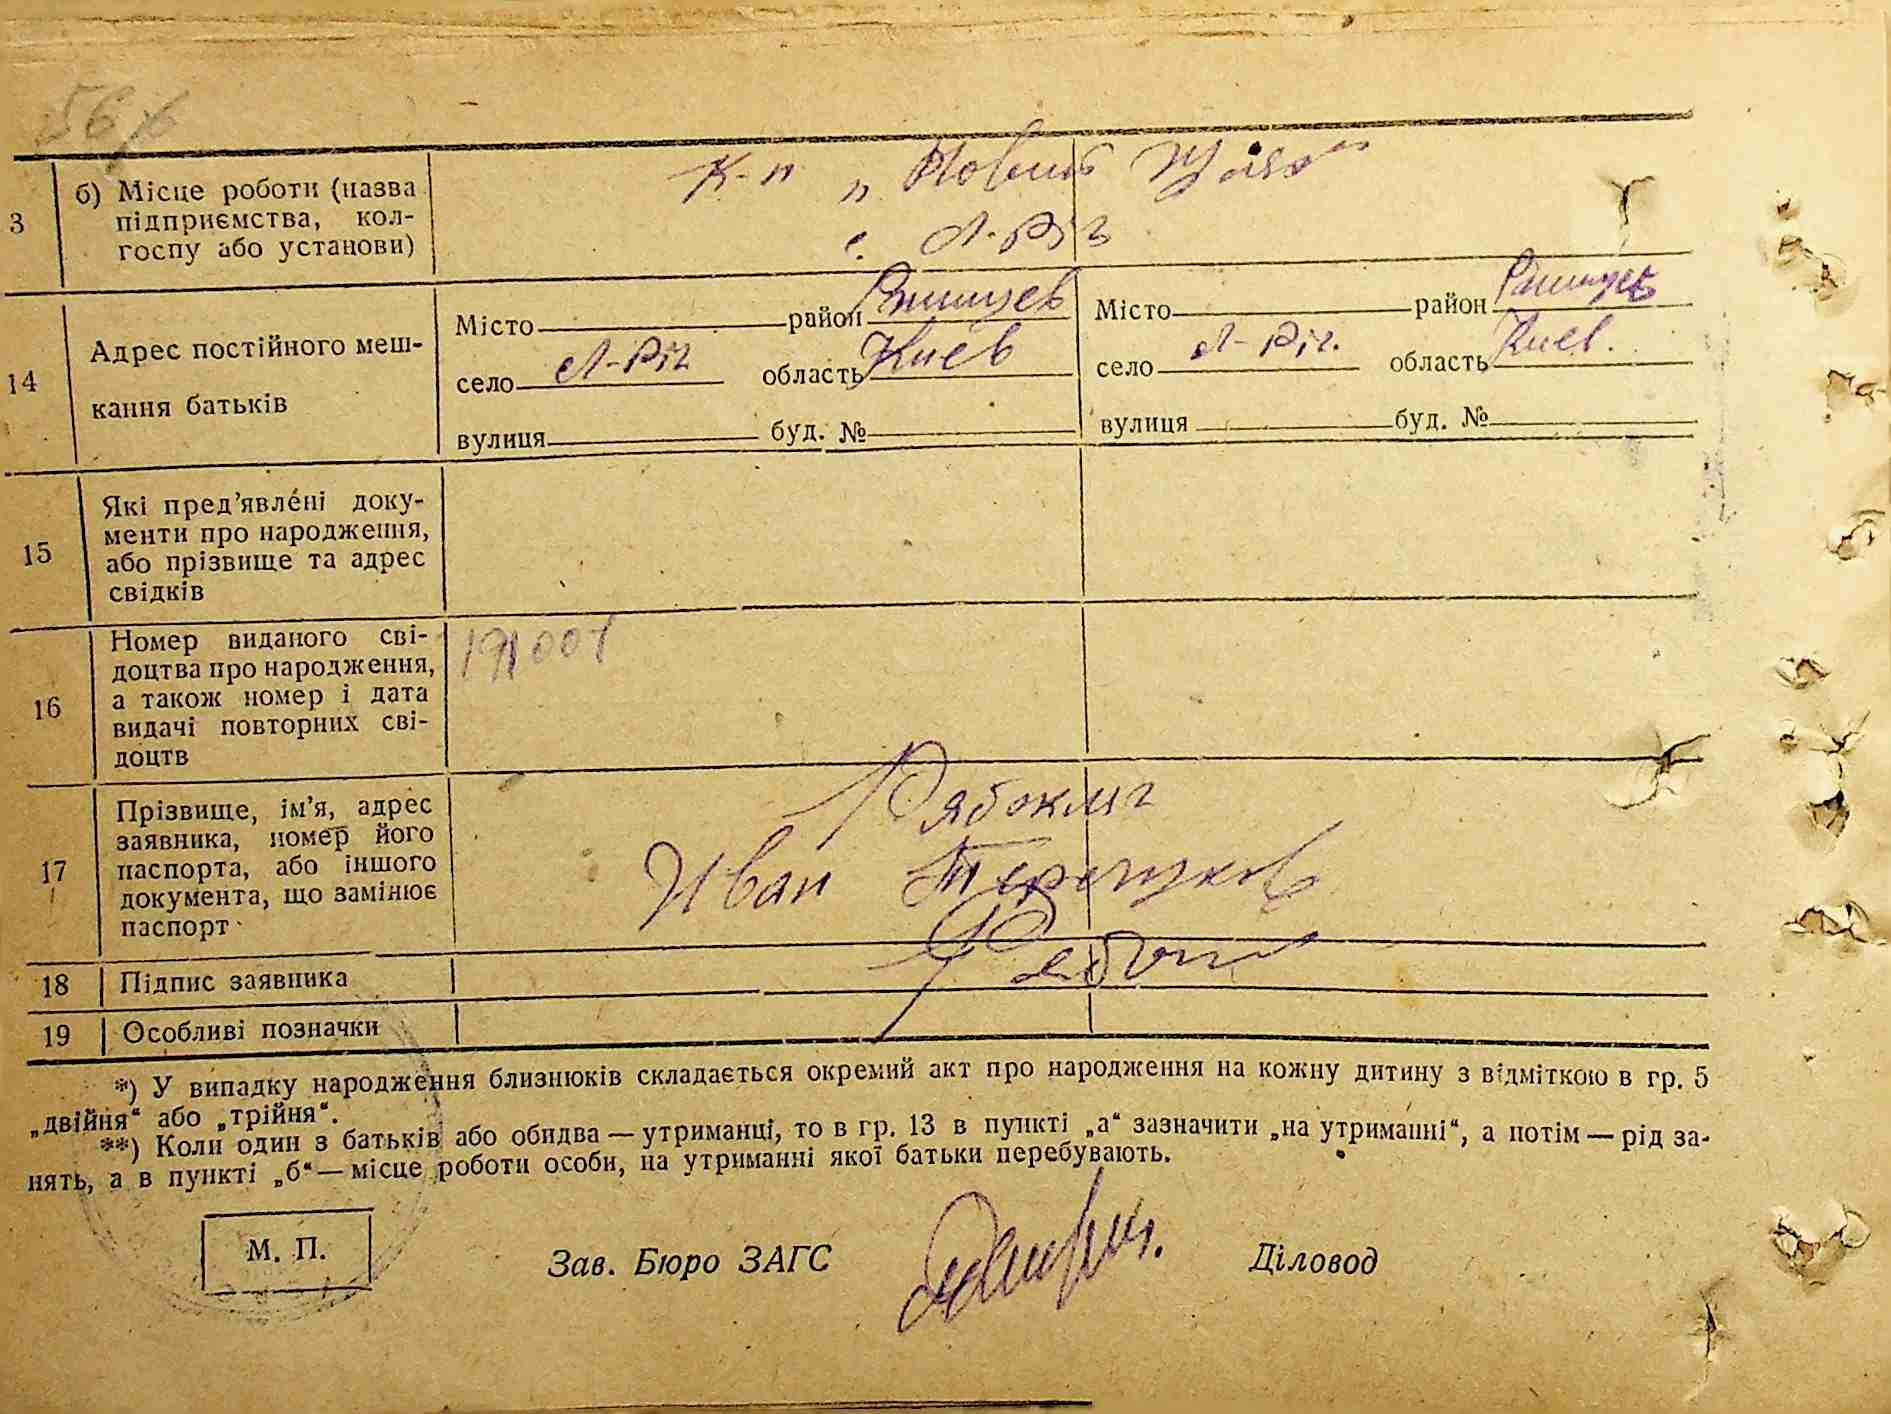 3
б) Місце роботи (назва
підприємства, кол-
госпу або установи)
К-п „Новий Шлях"
с. Л-Річ
14
Адрес постійного меш-
кання батьків
Місто район
село Л-Річ область Киев
вулиця буд. №
Місто район
село Л-Річ. область Киев.
вулиця буд. №
15
Які пред’явлені доку-
менти про народження,
або прізвище та адрес
свідків
16
Номер виданого сві-
доцтва про народження,
а також номер і дата
видачі повторних сві-
доцтв
17
Прізвище, ім’я, адрес
заявника, номер його
паспорта, або іншого
документа, що замінює
паспорт
Иван
18 Підпис заявника
19 Особливі позначки
*) У випадку народження близнюків складається окремий акт про народження на кожну дитину з відміткою в гр. 5
„двійня“ або „трійня“.
**) Коли один з батьків або обидва — утриманці, то в гр. 13 в пункті „а“ зазначити „на утриманні“, а потім — рід за-
нять, а в пункті „б“ — місце роботи особи, на утриманні якої батьки перебувають.
М. П.
Зав. Бюро ЗАГС
Діловод